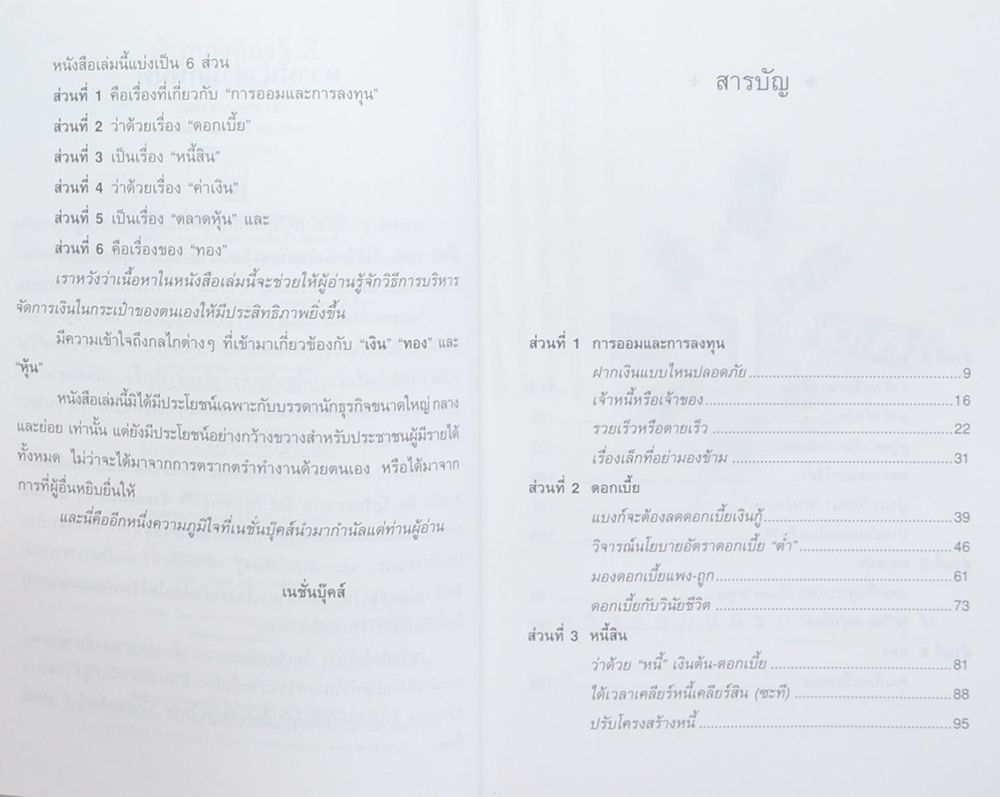 หนังสือเล่มนี้แบ่งเป็น 6 ส่วน
ส่วนที่ 1 คือเรื่องที่เกี่ยวกับ “การออมและการลงทุน”
ส่วนที่ 2 ว่าด้วยเรื่อง “ดอกเบี้ย”
ส่วนที่ 3 เป็นเรื่อง “หนี้สิน”
ส่วนที่ 4 ว่าด้วยเรื่อง “ค่าเงิน”
ส่วนที่ 5 เป็นเรื่อง “ตลาดหุ้น” และ
ส่วนที่ 6 คือเรื่องของ “ทอง”
เราหวังว่าเนื้อหาในหนังสือเล่มนี้จะช่วยให้ผู้อ่านรู้จักวิธีการบริหาร
จัดการเงินในกระเป๋าของตนเองให้มีประสิทธิภาพยิ่งขึ้น
มีความเข้าใจถึงกลไกต่างๆ ที่เข้ามาเกี่ยวข้องกับ “เงิน” “ทอง” และ
“หุ้น”
หนังสือเล่มนี้มิได้มีประโยชน์เฉพาะกับบรรดานักธุรกิจขนาดใหญ่ กลาง
และย่อย เท่านั้น แต่ยังมีประโยชน์อย่างกว้างขวางสำหรับประชาชนผู้มีรายได้
ทั้งหมด ไม่ว่าจะได้มาจากการตรากตรำทำงานด้วยตนเอง หรือได้มาจาก
การที่ผู้อื่นหยิบยื่นให้
และนี่คืออีกหนึ่งความภูมิใจที่เนชั่นบุ๊คส์นำมากำนัลแด่ท่านผู้อ่าน
เนชั่นบุ๊คส์
สารบัญ
ส่วนที่ 1 การออมและการลงทุน
ฝากเงินแบบไหนปลอดภัย 9
เจ้าหนี้หรือเจ้าของ 16
รวยเร็วหรือตายเร็ว 22
เรื่องเล็กที่อย่ามองข้าม 31
ส่วนที่ 2 ดอกเบี้ย
แบงก์จะต้องลดดอกเบี้ยเงินกู้ 39
วิจารณ์นโยบายอัตราดอกเบี้ย “ต่ำ” 46
มองดอกเบี้ยแพง-ถูก 61
ดอกเบี้ยกับวินัยชีวิต 73
ส่วนที่ 3 หนี้สิน
ว่าด้วย “หนี้” เงินต้น-ดอกเบี้ย 81
ได้เวลาเคลียร์หนี้เคลียร์สิน (ซะที) 88
ปรับโครงสร้างหนี้ 95